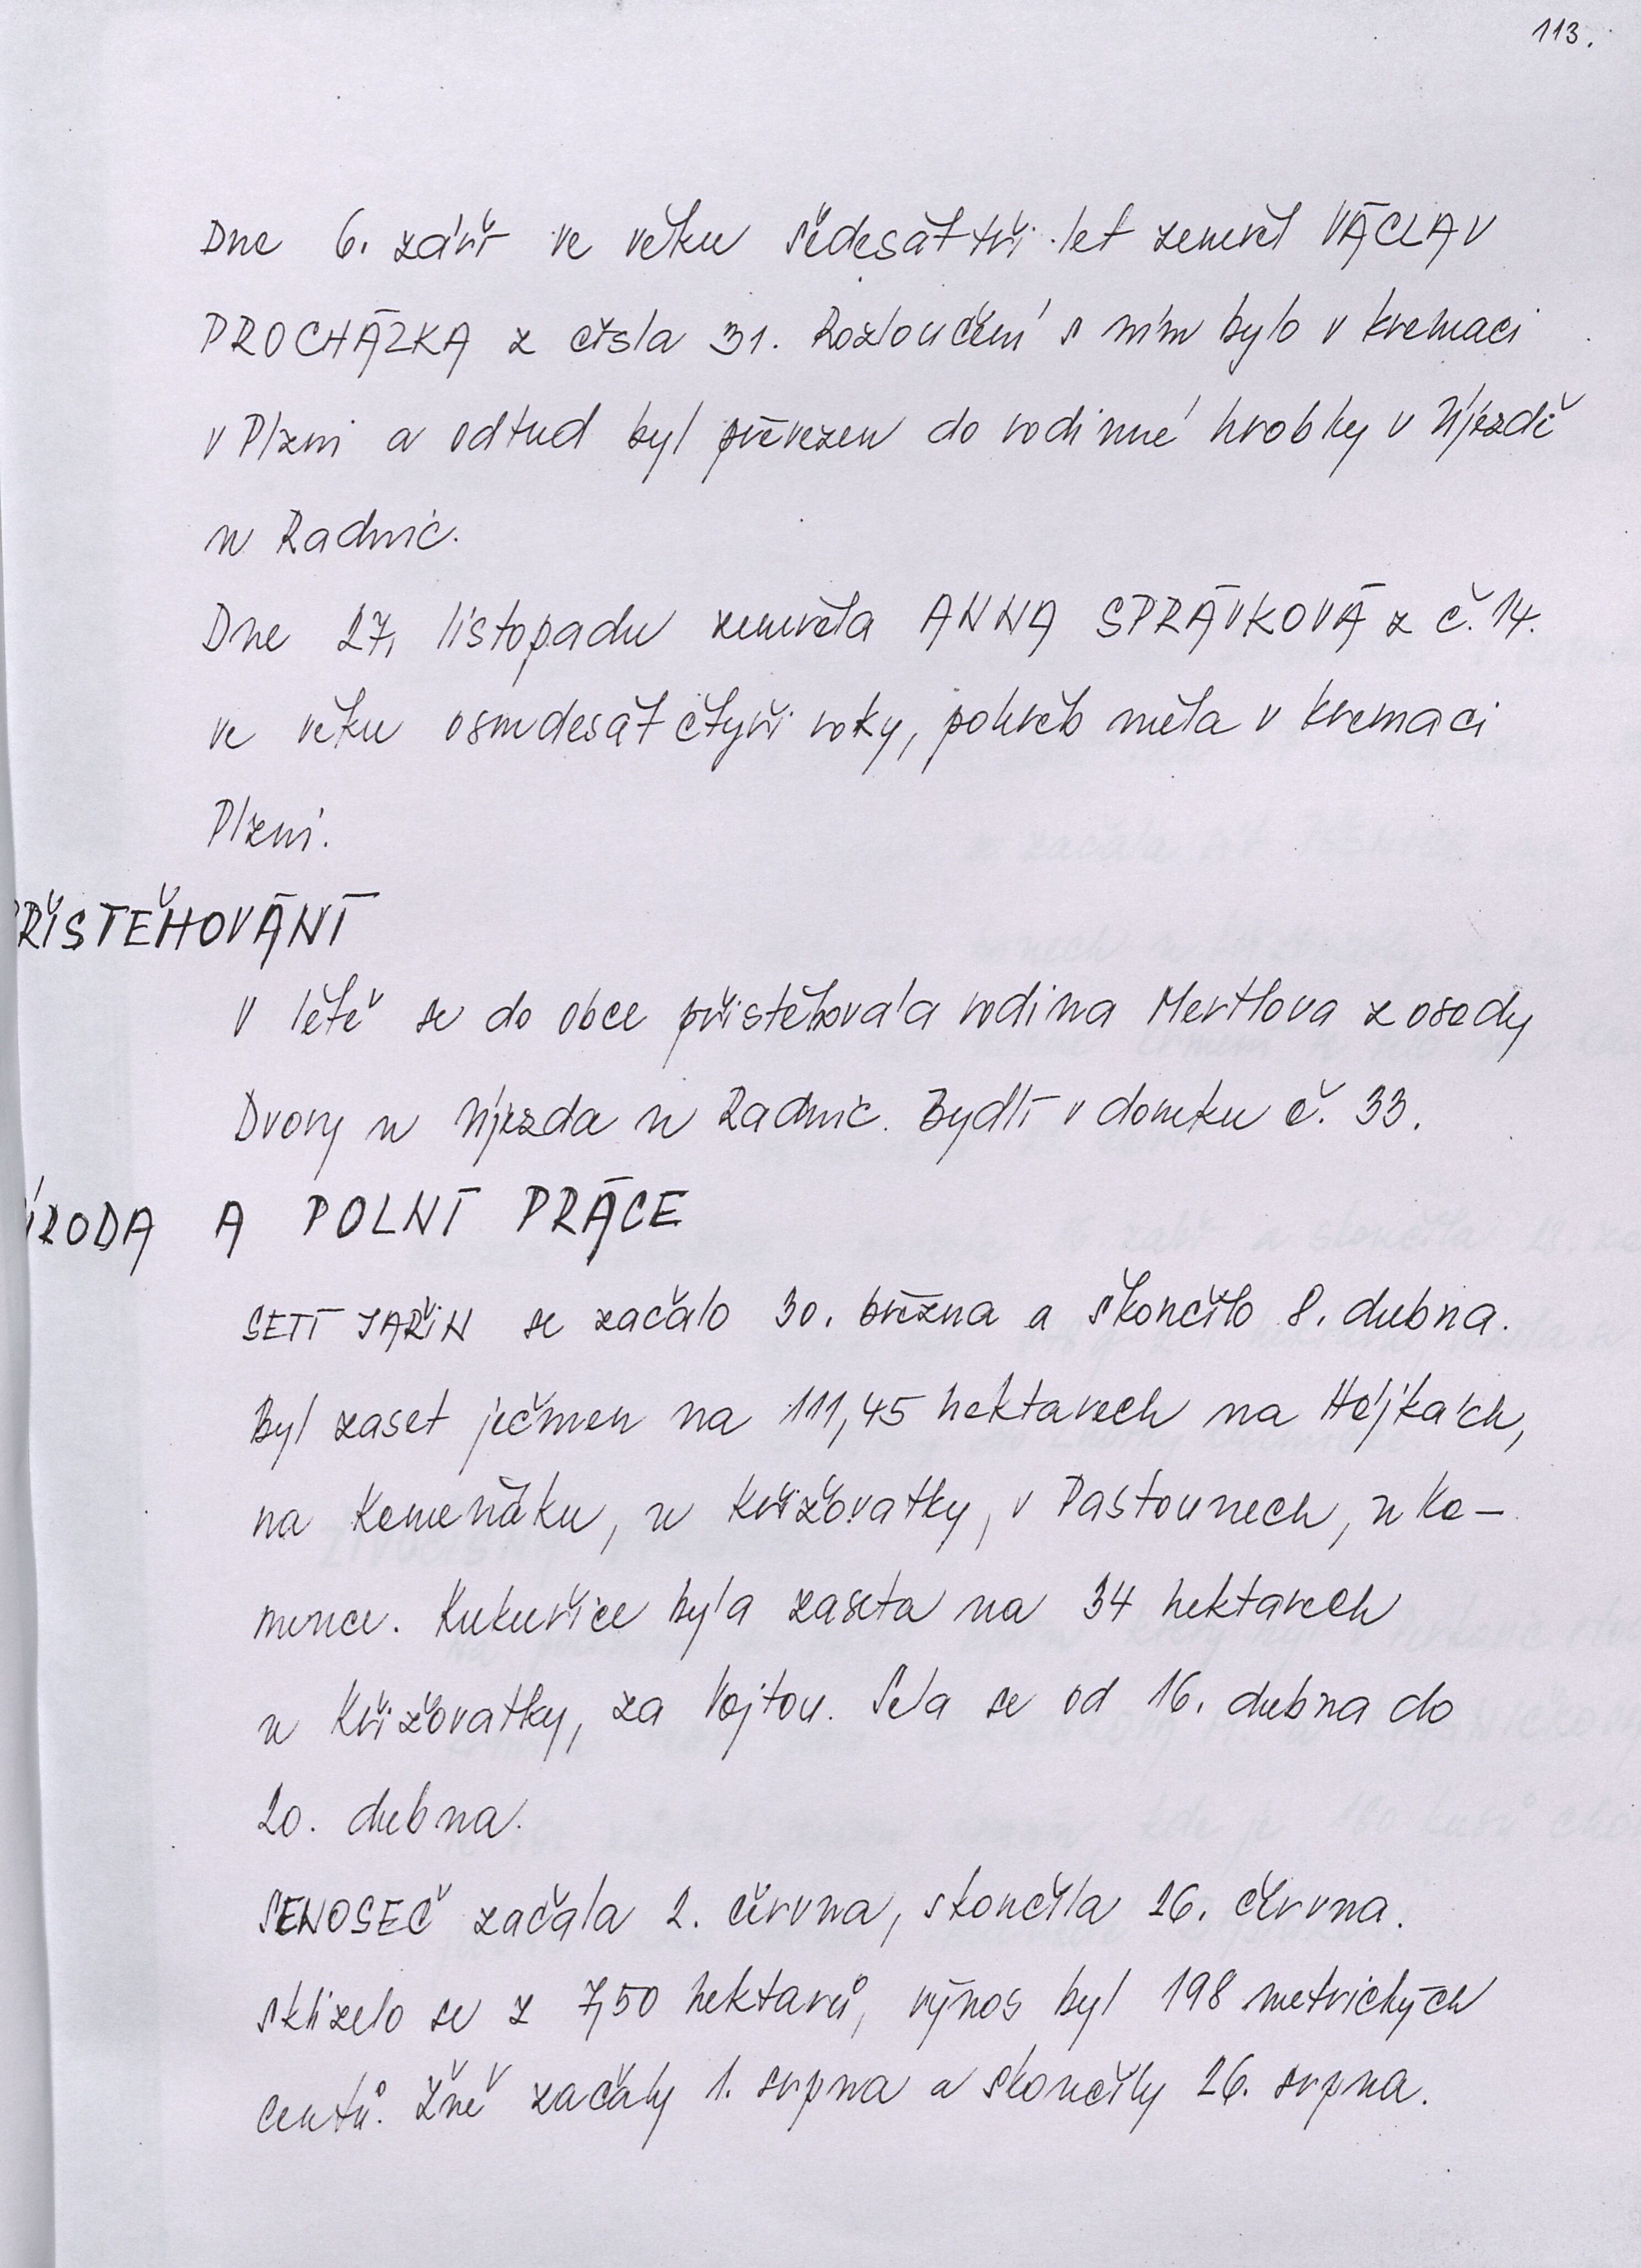 113.
Dne 6. září ve věku šedesát tři let zemřel VÁCLAV
PROCHÁZKA z čísla 31. Rozloučení s ním bylo v kremaci
v Plzni a odtud byl převezen do rodinné hrobky v Újezdě
u Radnic.
Dne 27. listopadu zemřela ANNA SPRÁVKOVÁ z č. 14.
ve věku osmdesát čtyři roky, pohřeb měla v kremaci
Plzni.
PŘISTĚHOVÁNÍ
V létě se do obce přistěhovala rodina Mertlova z osady
Dvory u Újezda u Radnic. Bydlí v domku č. 33.
ÚRODA A POLNÍ PRÁCE
SETÍ JAŘIN se začalo 30. března a skončilo 8. dubna.
Byl zaset ječmen na 111,45 hektarech na Hájkách,
na Kameňáku, u Křižovatky, v Pastounech, u Ka-
mence. Kukuřice byla zaseta na 34 hektarech
u Křižovatky, za Vojtou. Sela se od 16. dubna do
20. dubna.
SENOSEČ začala 2. června, skončila 26. června.
Sklizelo se z 7,50 hektarů, výnos byl 198 metrických
centů. Žně začaly 1. srpna a skončily 26. srpna.